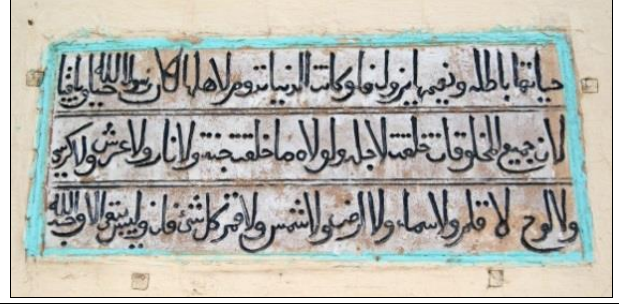 حياتها باطله ونعيمها يزول فلو كانت الدنيا تدوم لاهلها لكان رسول الله حيا وباقيا
لان جميع المخلوقات خلقت لاجله ولولاه ما خلقت جنة ولا نار ولا عرش ولا كرسي
ولا لوح لا قلم ولا سماء ولا ارض ولا شمس ولا قمر كل شئ فان وليس يبقى الا وجه الله